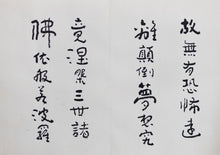 故無有恐怖遠
離顛倒夢想究
竟涅槃三世諸
佛依般若波羅